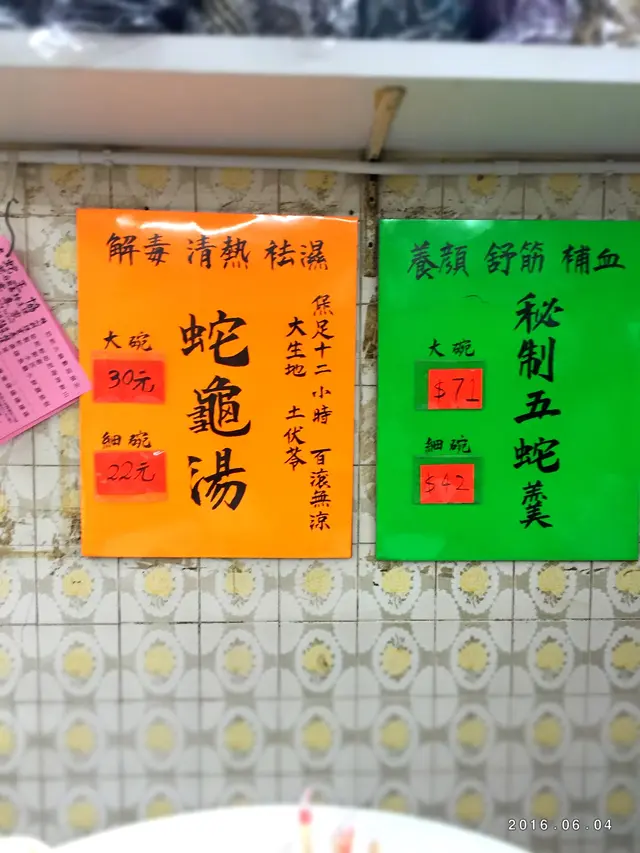 解毒 清熱 袪濕
煲足十二小時 百滾無涼
大生地 土伏苓
蛇龜湯
大碗
30元
細碗
22元
養顏 舒筋 補血
秘制五蛇羹
大碗
$71
細碗
$42
2016.06.04